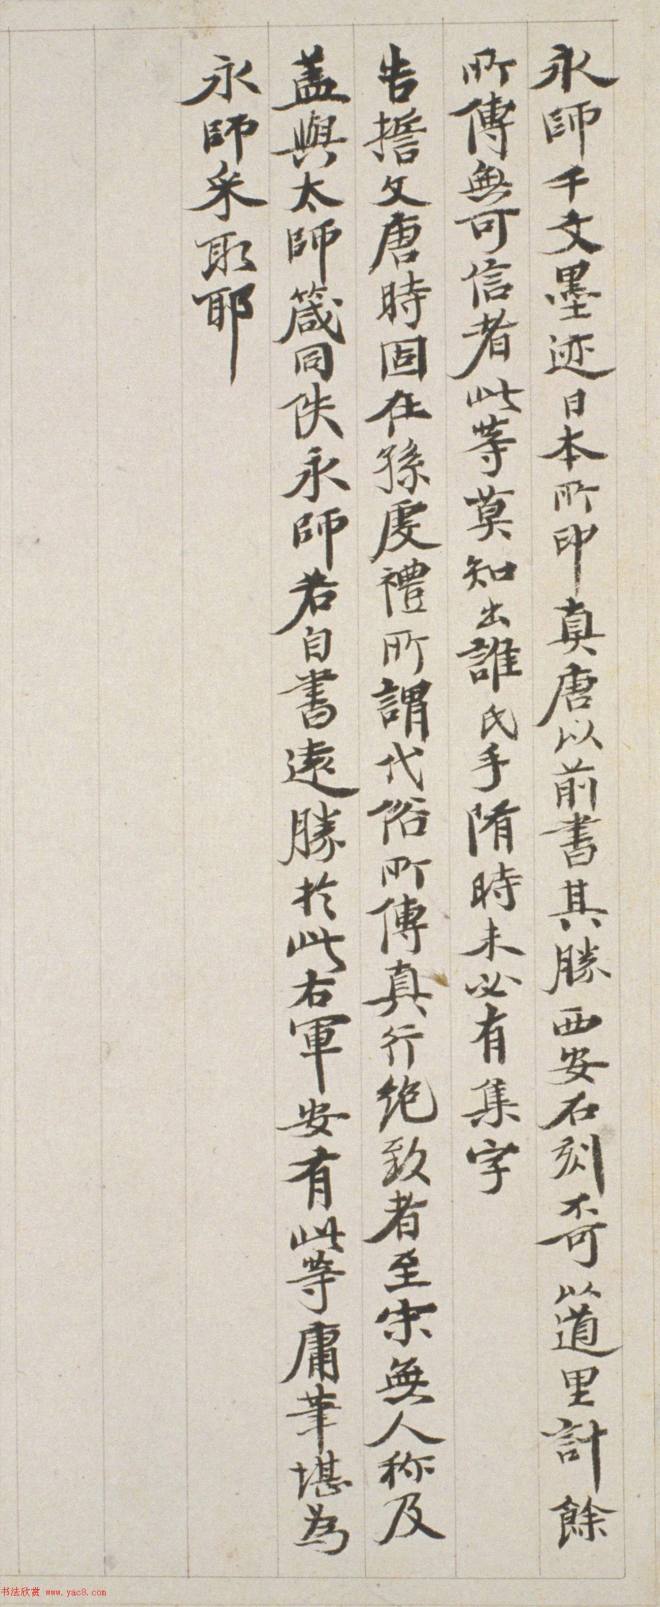 永師千文墨迹日本所印真唐以前書其勝西安石刻奇以道里計餘
所傳無可信者此等莫知出誰氏手隋時未必有集字
告誓文唐時固在孫虔禮所謂代俗所傳真行绝致者至宋無人称及
盖與太師箴同佚永師若自書遠勝於此右軍安有此等庸筆堪為
永師采取耶
书法欣赏 www.yac8.com